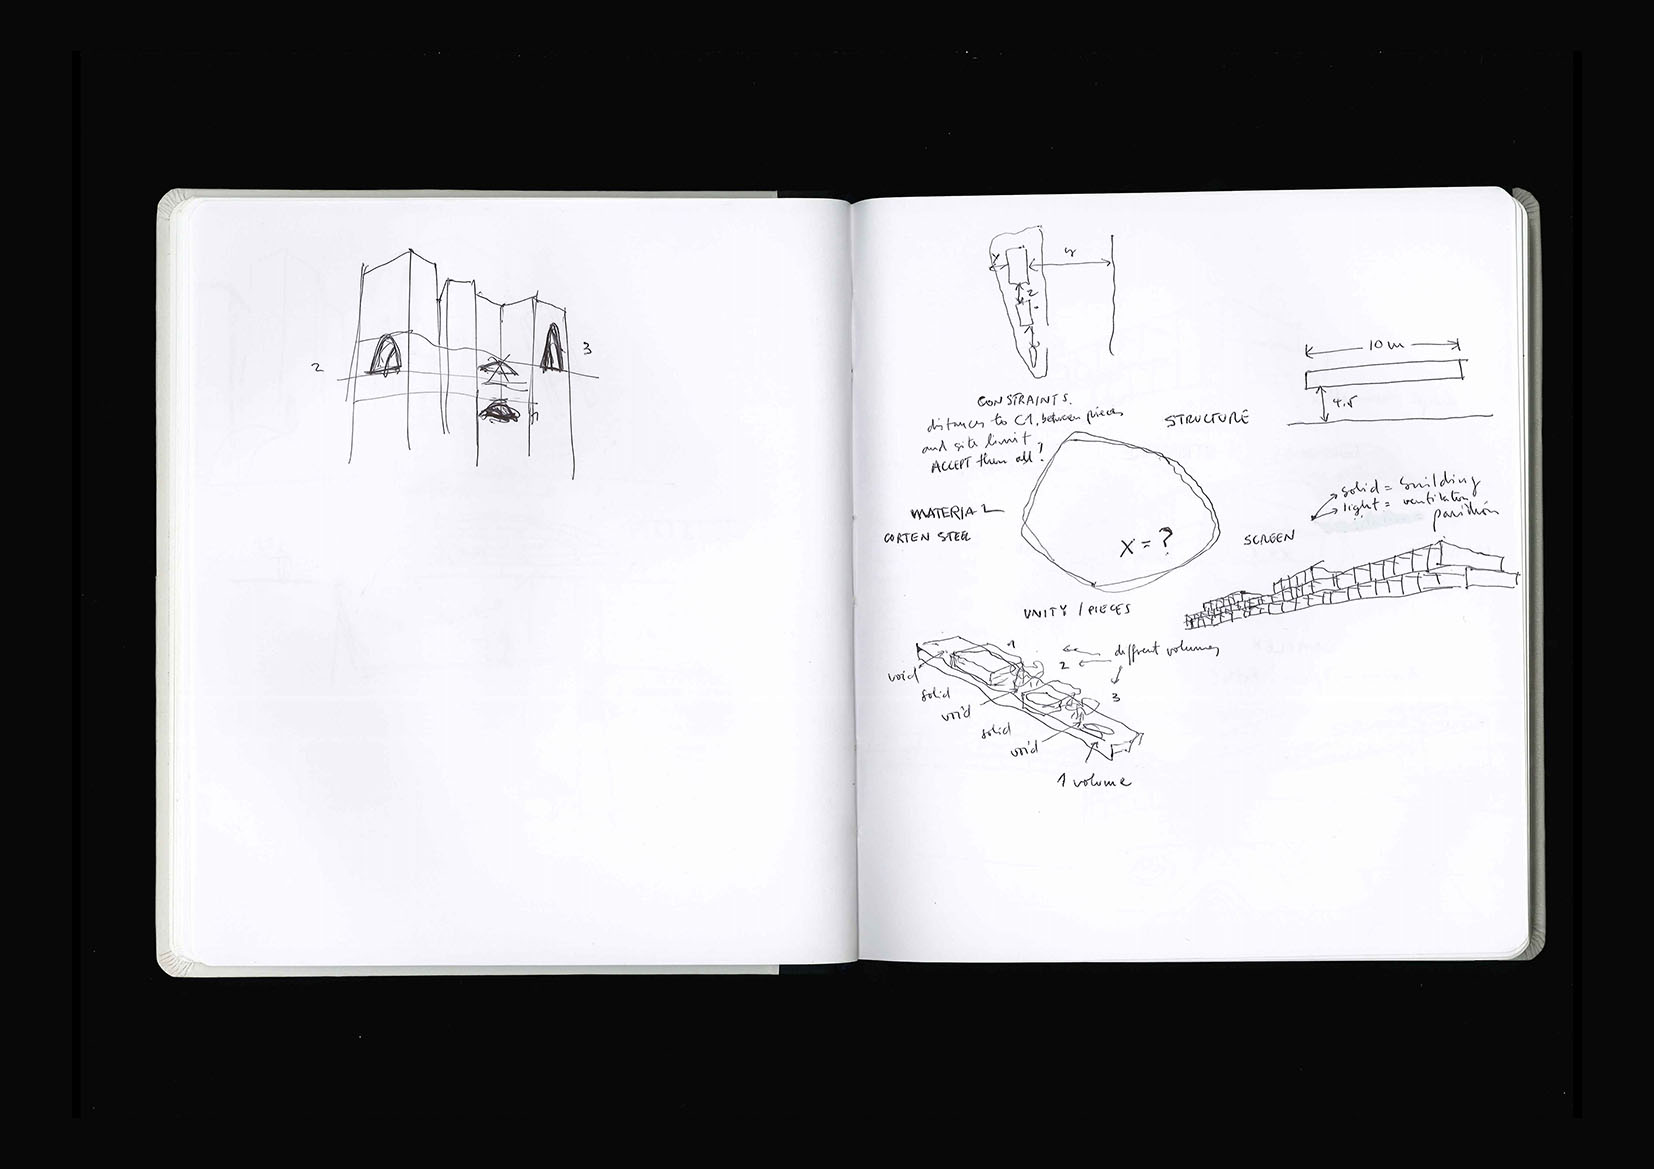 2
3
1
y
y
2
CONSTRAINTS.
distances to C1, between pieces
and site limit
ACCEPT them all!
10 m
4.5
STRUCTURE
MATERIAL
CORTEN STEEL
X = ?
SCREEN
solid = building
light = ventilation
pavilion
UNITY / PIECES
1
2
diffrent volumes
3
void
solid
void
solid
void
1 volume